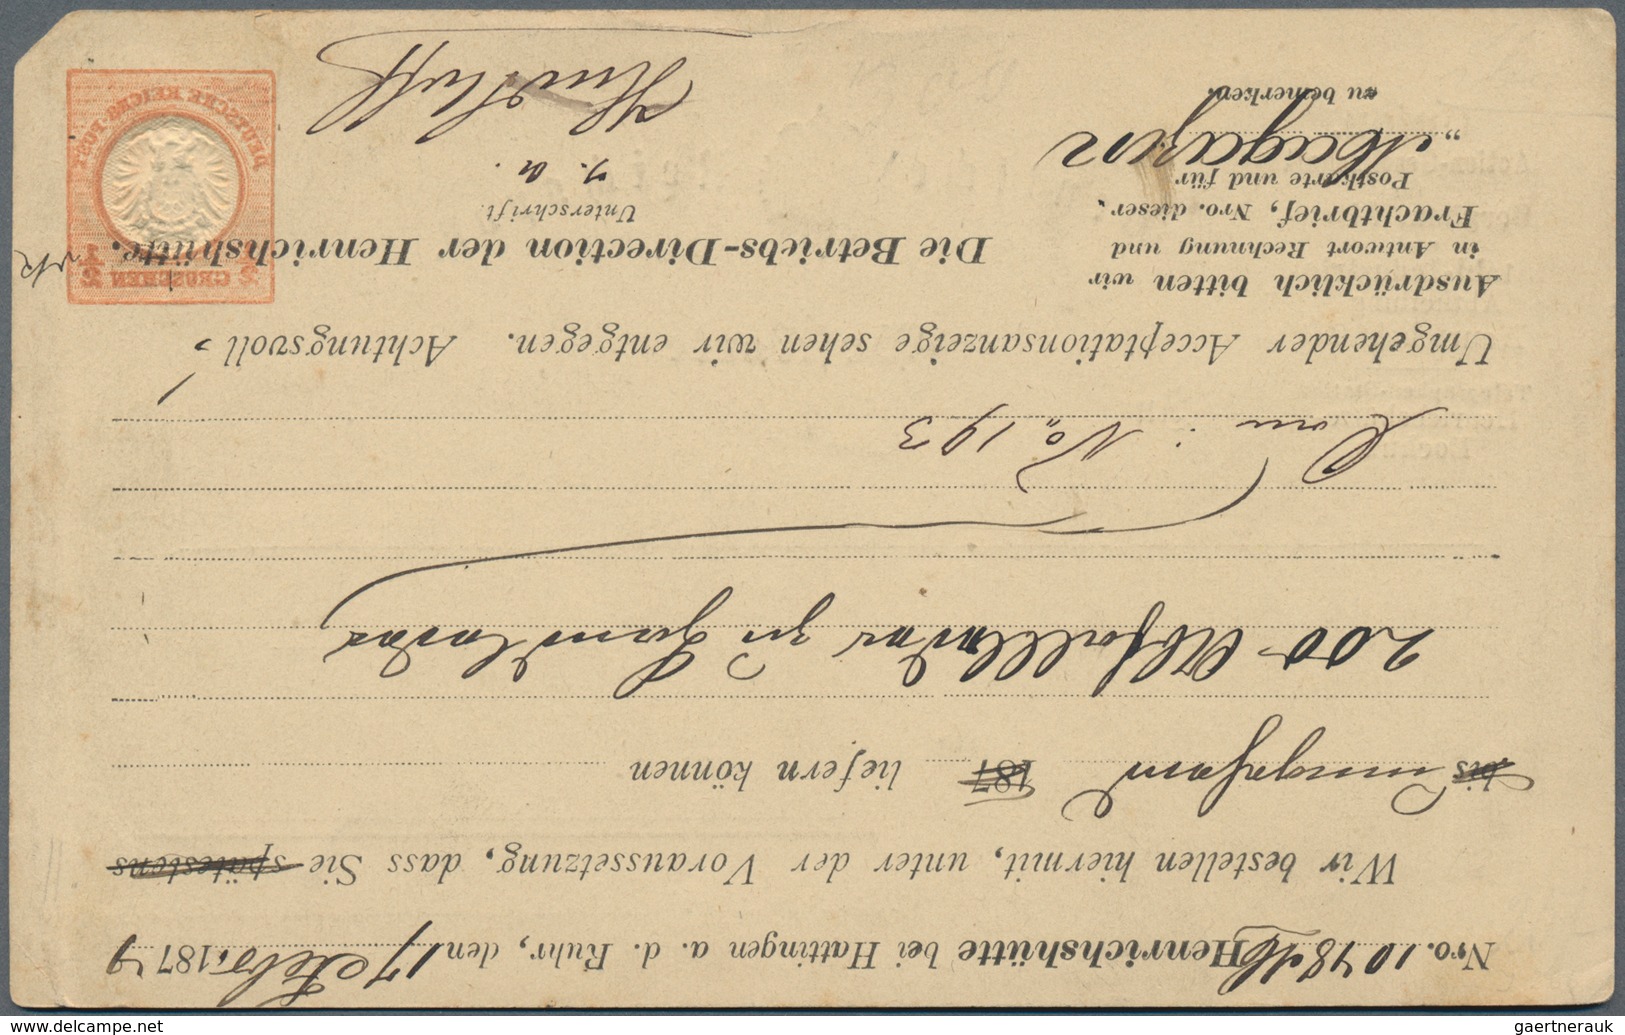 Nro. 1048 M Henrichshütte bei Hattingen a. d. Ruhr, den 17 Febr. 1874
Wir bestellen hiermit, unter der Voraussetzung, dass Sie spätestens
bis umgehend 187 liefern können
200
Com: No. 193
Umgehender Acceptationsanzeige sehen wir entgegen. Achtungsvoll
Ausdrücklich bitten wir
in Antwort Rechnung und
Frachtbrief, Nro. dieser
Postkarte und für
„Magazin
zu bemerken.
Die Betriebs-Direction der Henrichshütte.
Unterschrift.
DEUTSCHE REICHS-POST
1/2 GROSCHEN 1/2
gaertnerauk @ www.delcampe.net